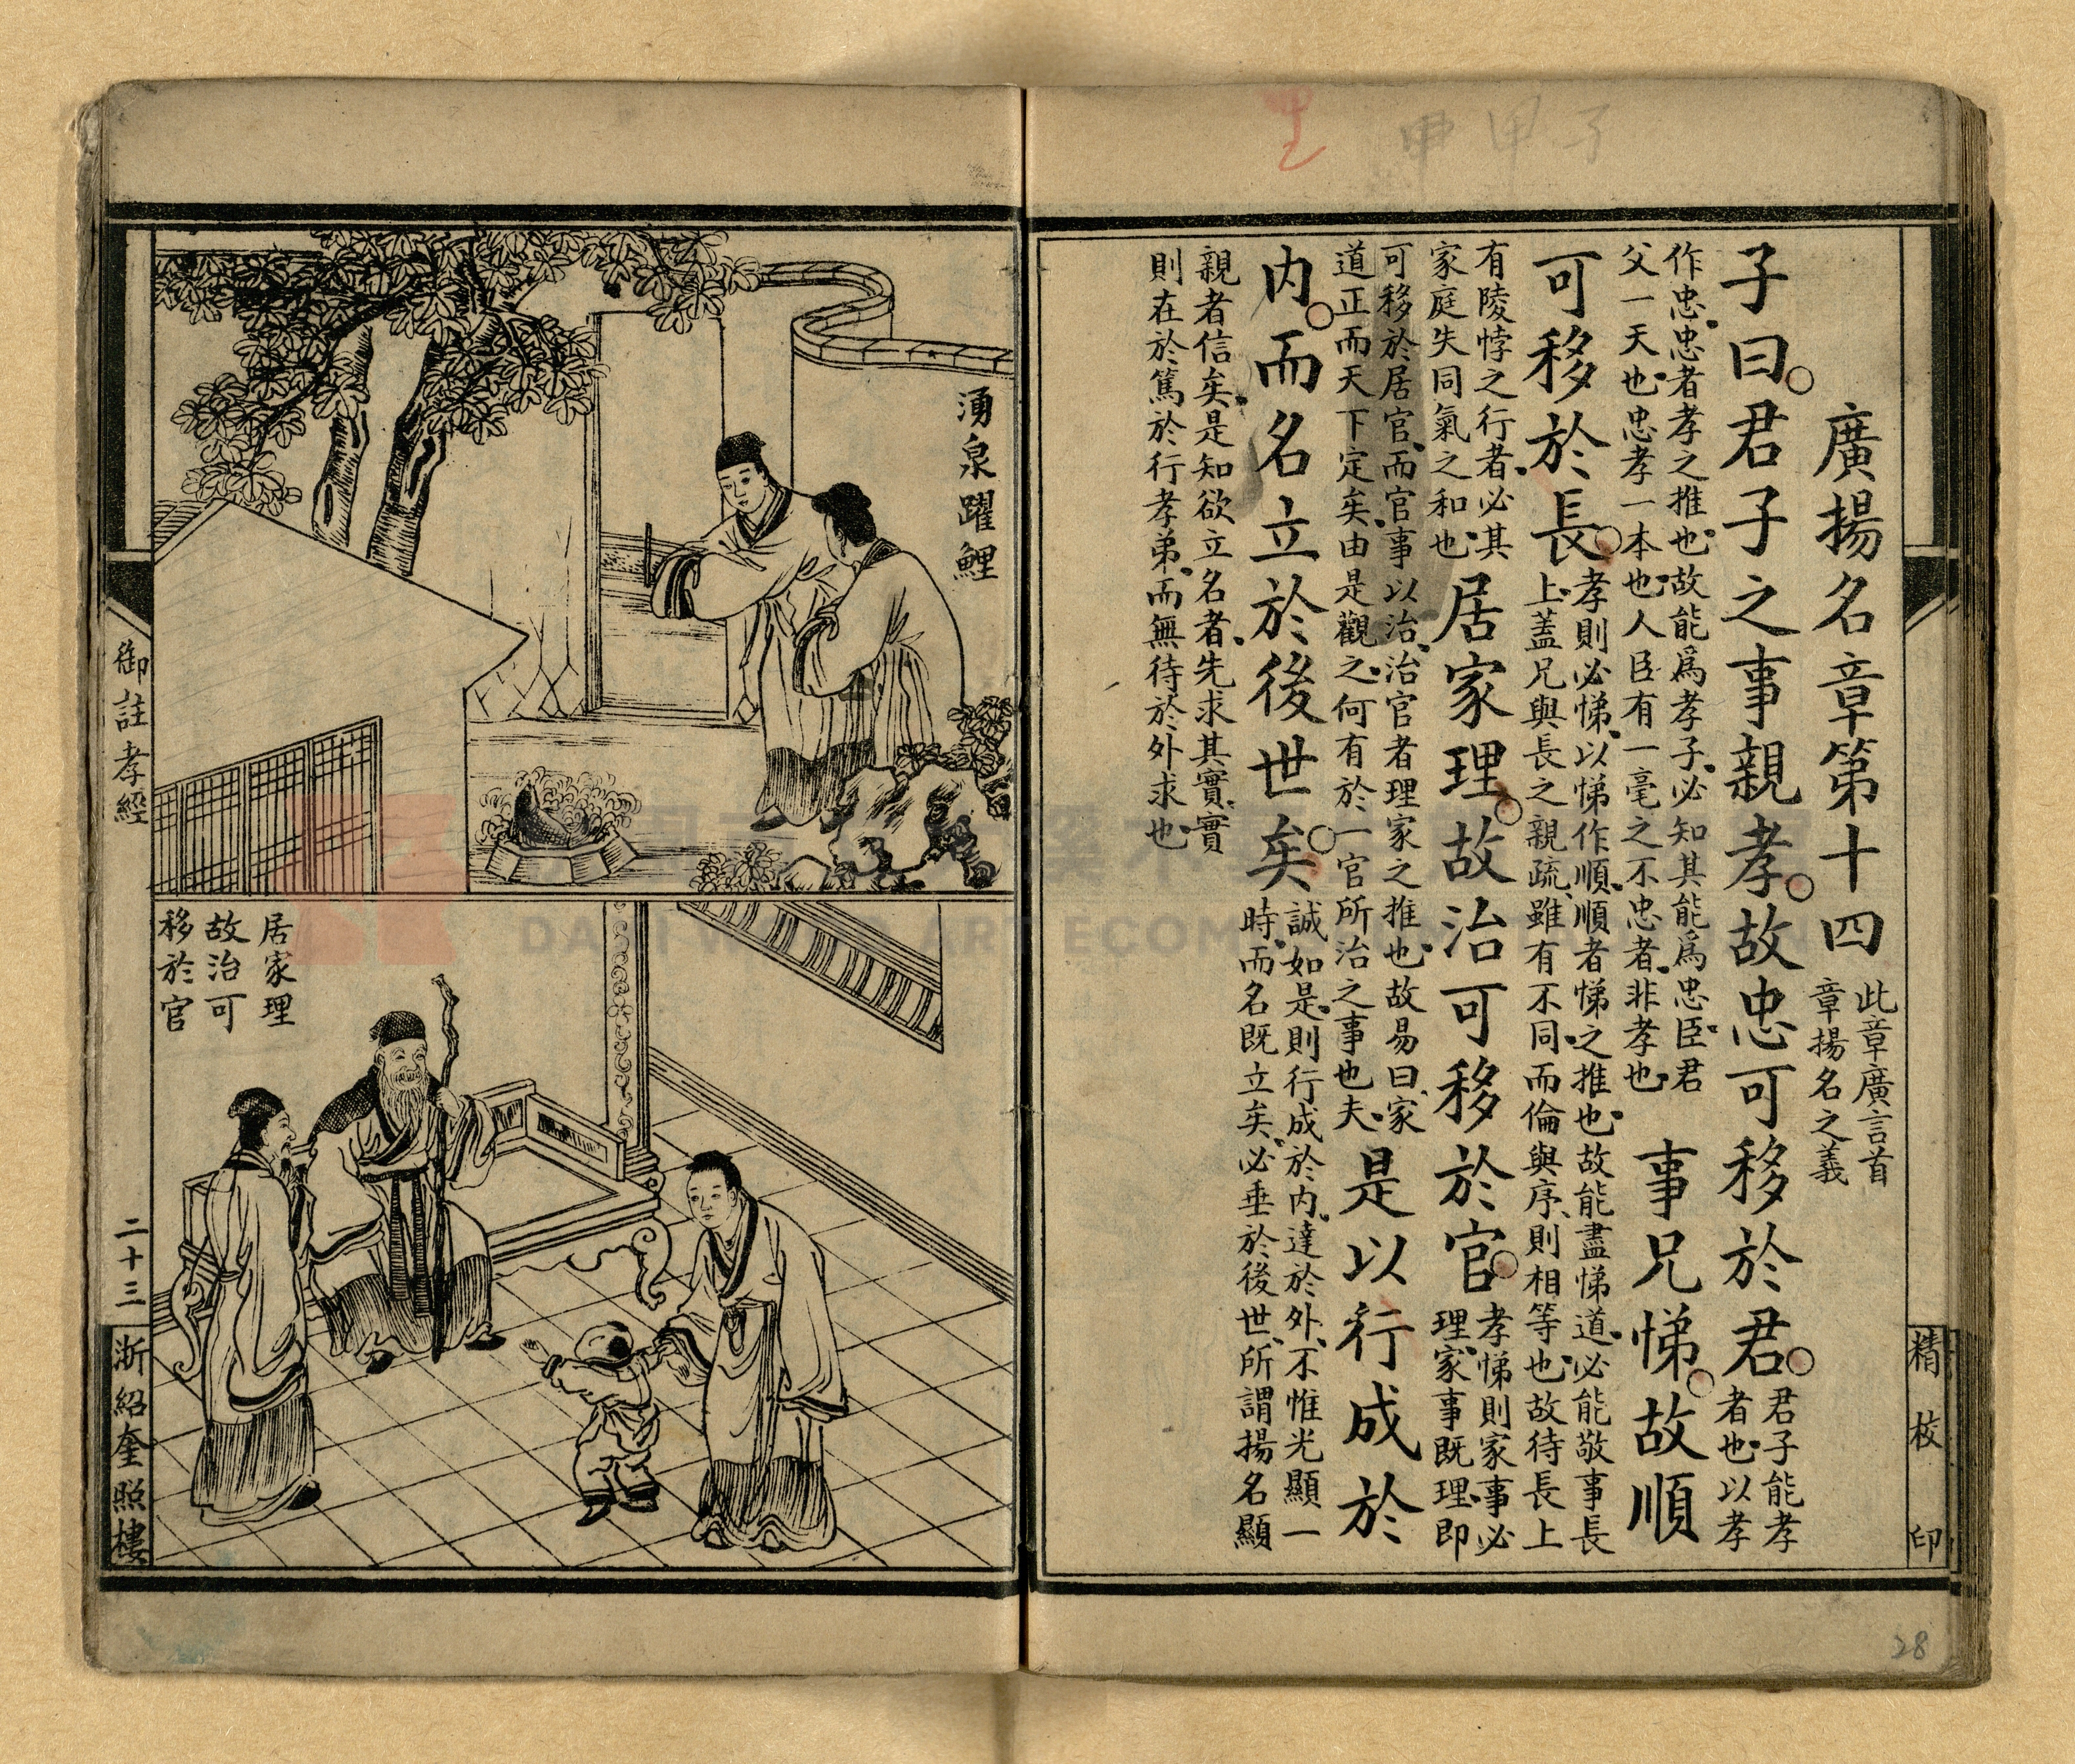 廣揚名章第十四
此章廣言首
章揚名之義
子曰。君子之事親孝。故忠可移於君。
君子能孝
者也以孝
作忠忠者孝之推也故能爲孝子必知其能爲忠臣君
父一天也忠孝一本也人臣有一毫之不忠者非孝也
事兄悌。故順
可移於長。
孝則必悌以悌作順順者悌之推也故能盡悌道必能敬事長
上蓋兄與長之親疏雖有不同而倫與序則相等也故待長上
有陵悖之行者必其
家庭失同氣之和也
居家理。故治可移於官。
孝悌則家事必
理家事既理即
可移於居官而官事以治治官者理家之推也故易曰家
道正而天下定矣由是觀之何有於一官所治之事也夫
是以行成於
内。而名立於後世矣。
誠如是則行成於内達於外不惟光顯一
時而名既立矣必垂於後世所謂揚名顯
親者信矣是知欲立名者先求其實實
則在於篤於行孝弟而無待於外求也
精校印
28
湧泉躍鯉
居家理
故治可
移於官
御註孝經
二十三
浙紹奎照樓